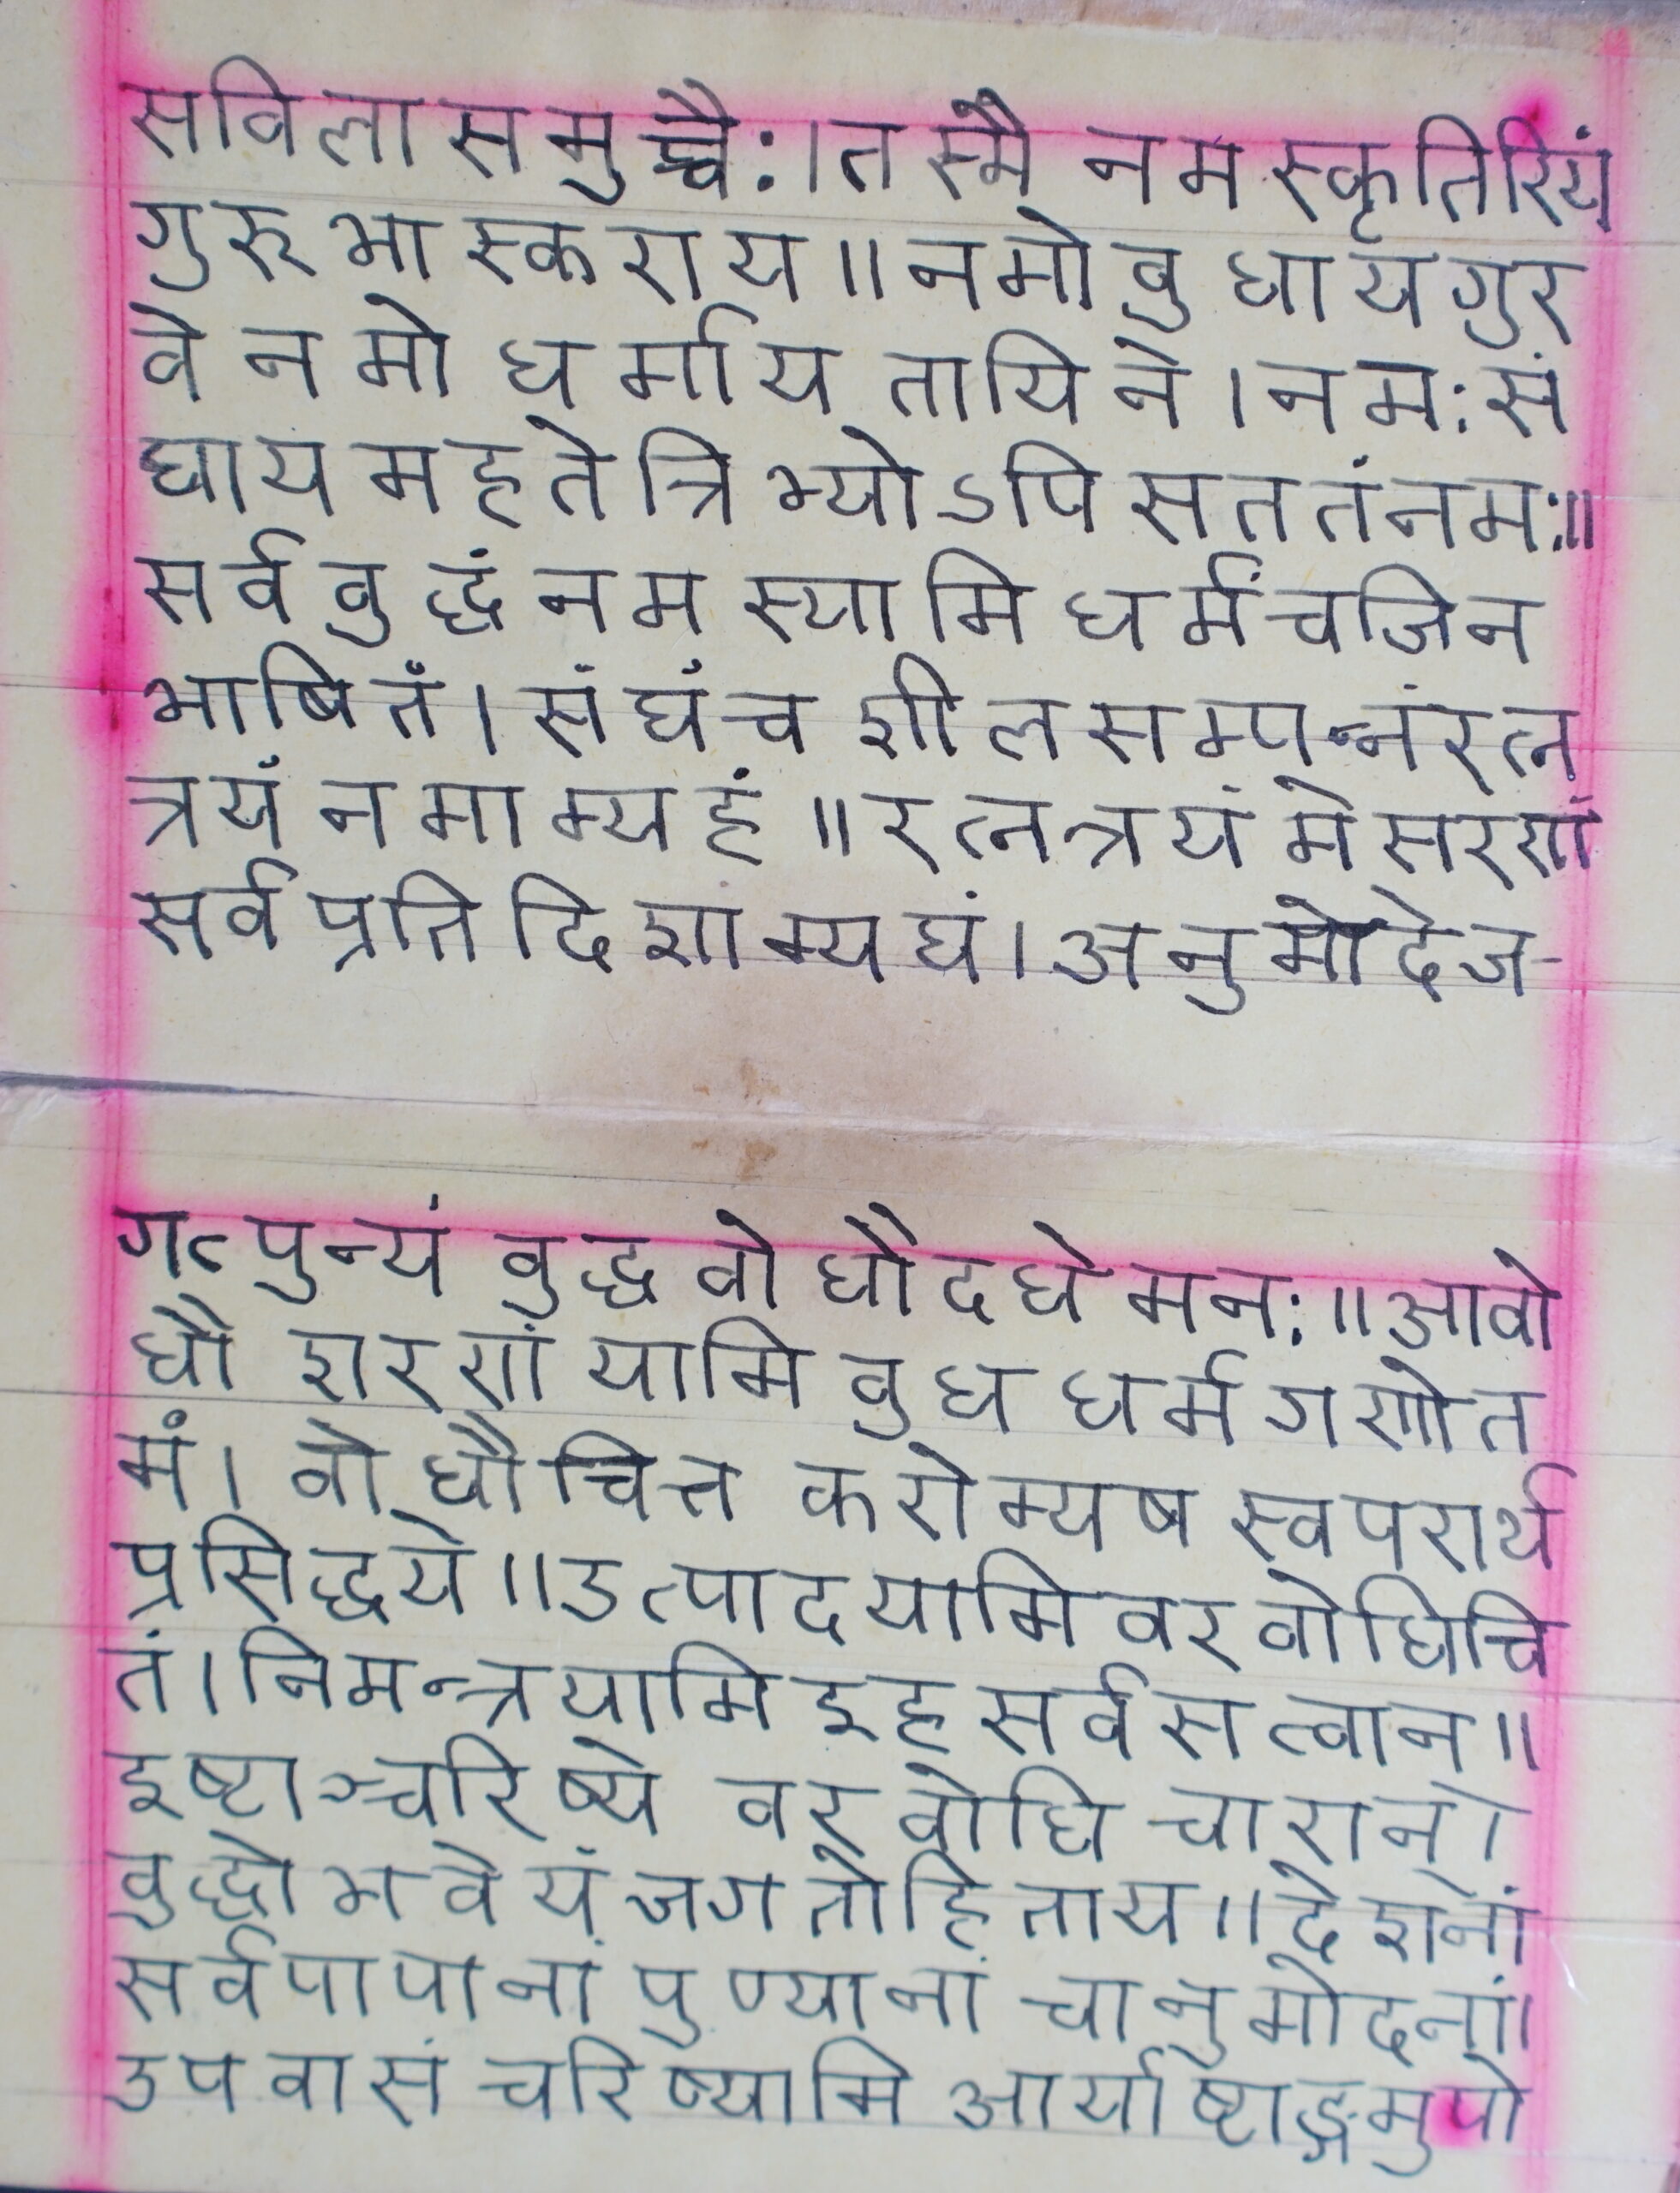 सविलासमुच्चैः।तस्मै नमस्कृतिरियं
गुरुभास्कराय॥नमोवुधायगुर
वे नमो धर्माय तायिने।नमःसं
घाय महते त्रिभ्योऽपि सततंनमः॥
सर्व वुद्धं नमस्यामि धर्मंचजिन
भाषितं।संघंच शीलसम्पन्नंरत्न
त्रयं नमाम्यहं॥रत्नत्रयं मे सरणं
सर्व प्रतिदिशाम्यघं।अनुमोदेज-
गत्पुन्यं वुद्धवोधौदधे मनः॥आवो
धौ शरणं यामि वुध धर्म गणोत
मं। वोधौचित्त करोम्यष स्वपरार्थ
प्रसिद्धये॥उत्पादयामि वर वोधिचि
तं।निमन्त्रयामि इह सर्व सत्वान॥
इष्टाञ्चरिष्ये वर वोधि चारान्।
वुद्धो भवेयं जगतोहिताय॥देशनां
सर्वपापानां पुण्यानां चानुमोदनां।
उपवासं चरिष्यामि आर्याष्टाङ्गमुपो